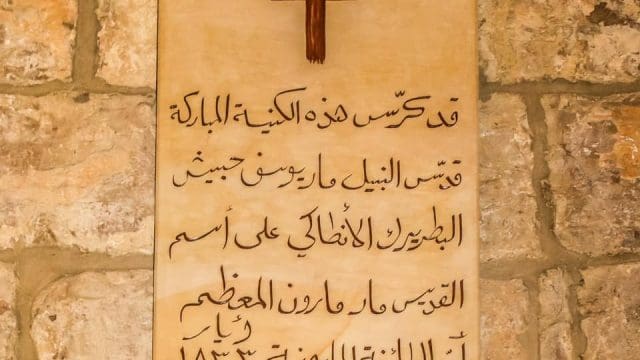 قد كرّس هذه الكنيسة المباركة
قدّس النبيل مار يوسف حبيش
البطريرك الأنطاكي على أسم
القديس مار مارون المعظم
أيار
الطائفة المارونية ١٨٣٣